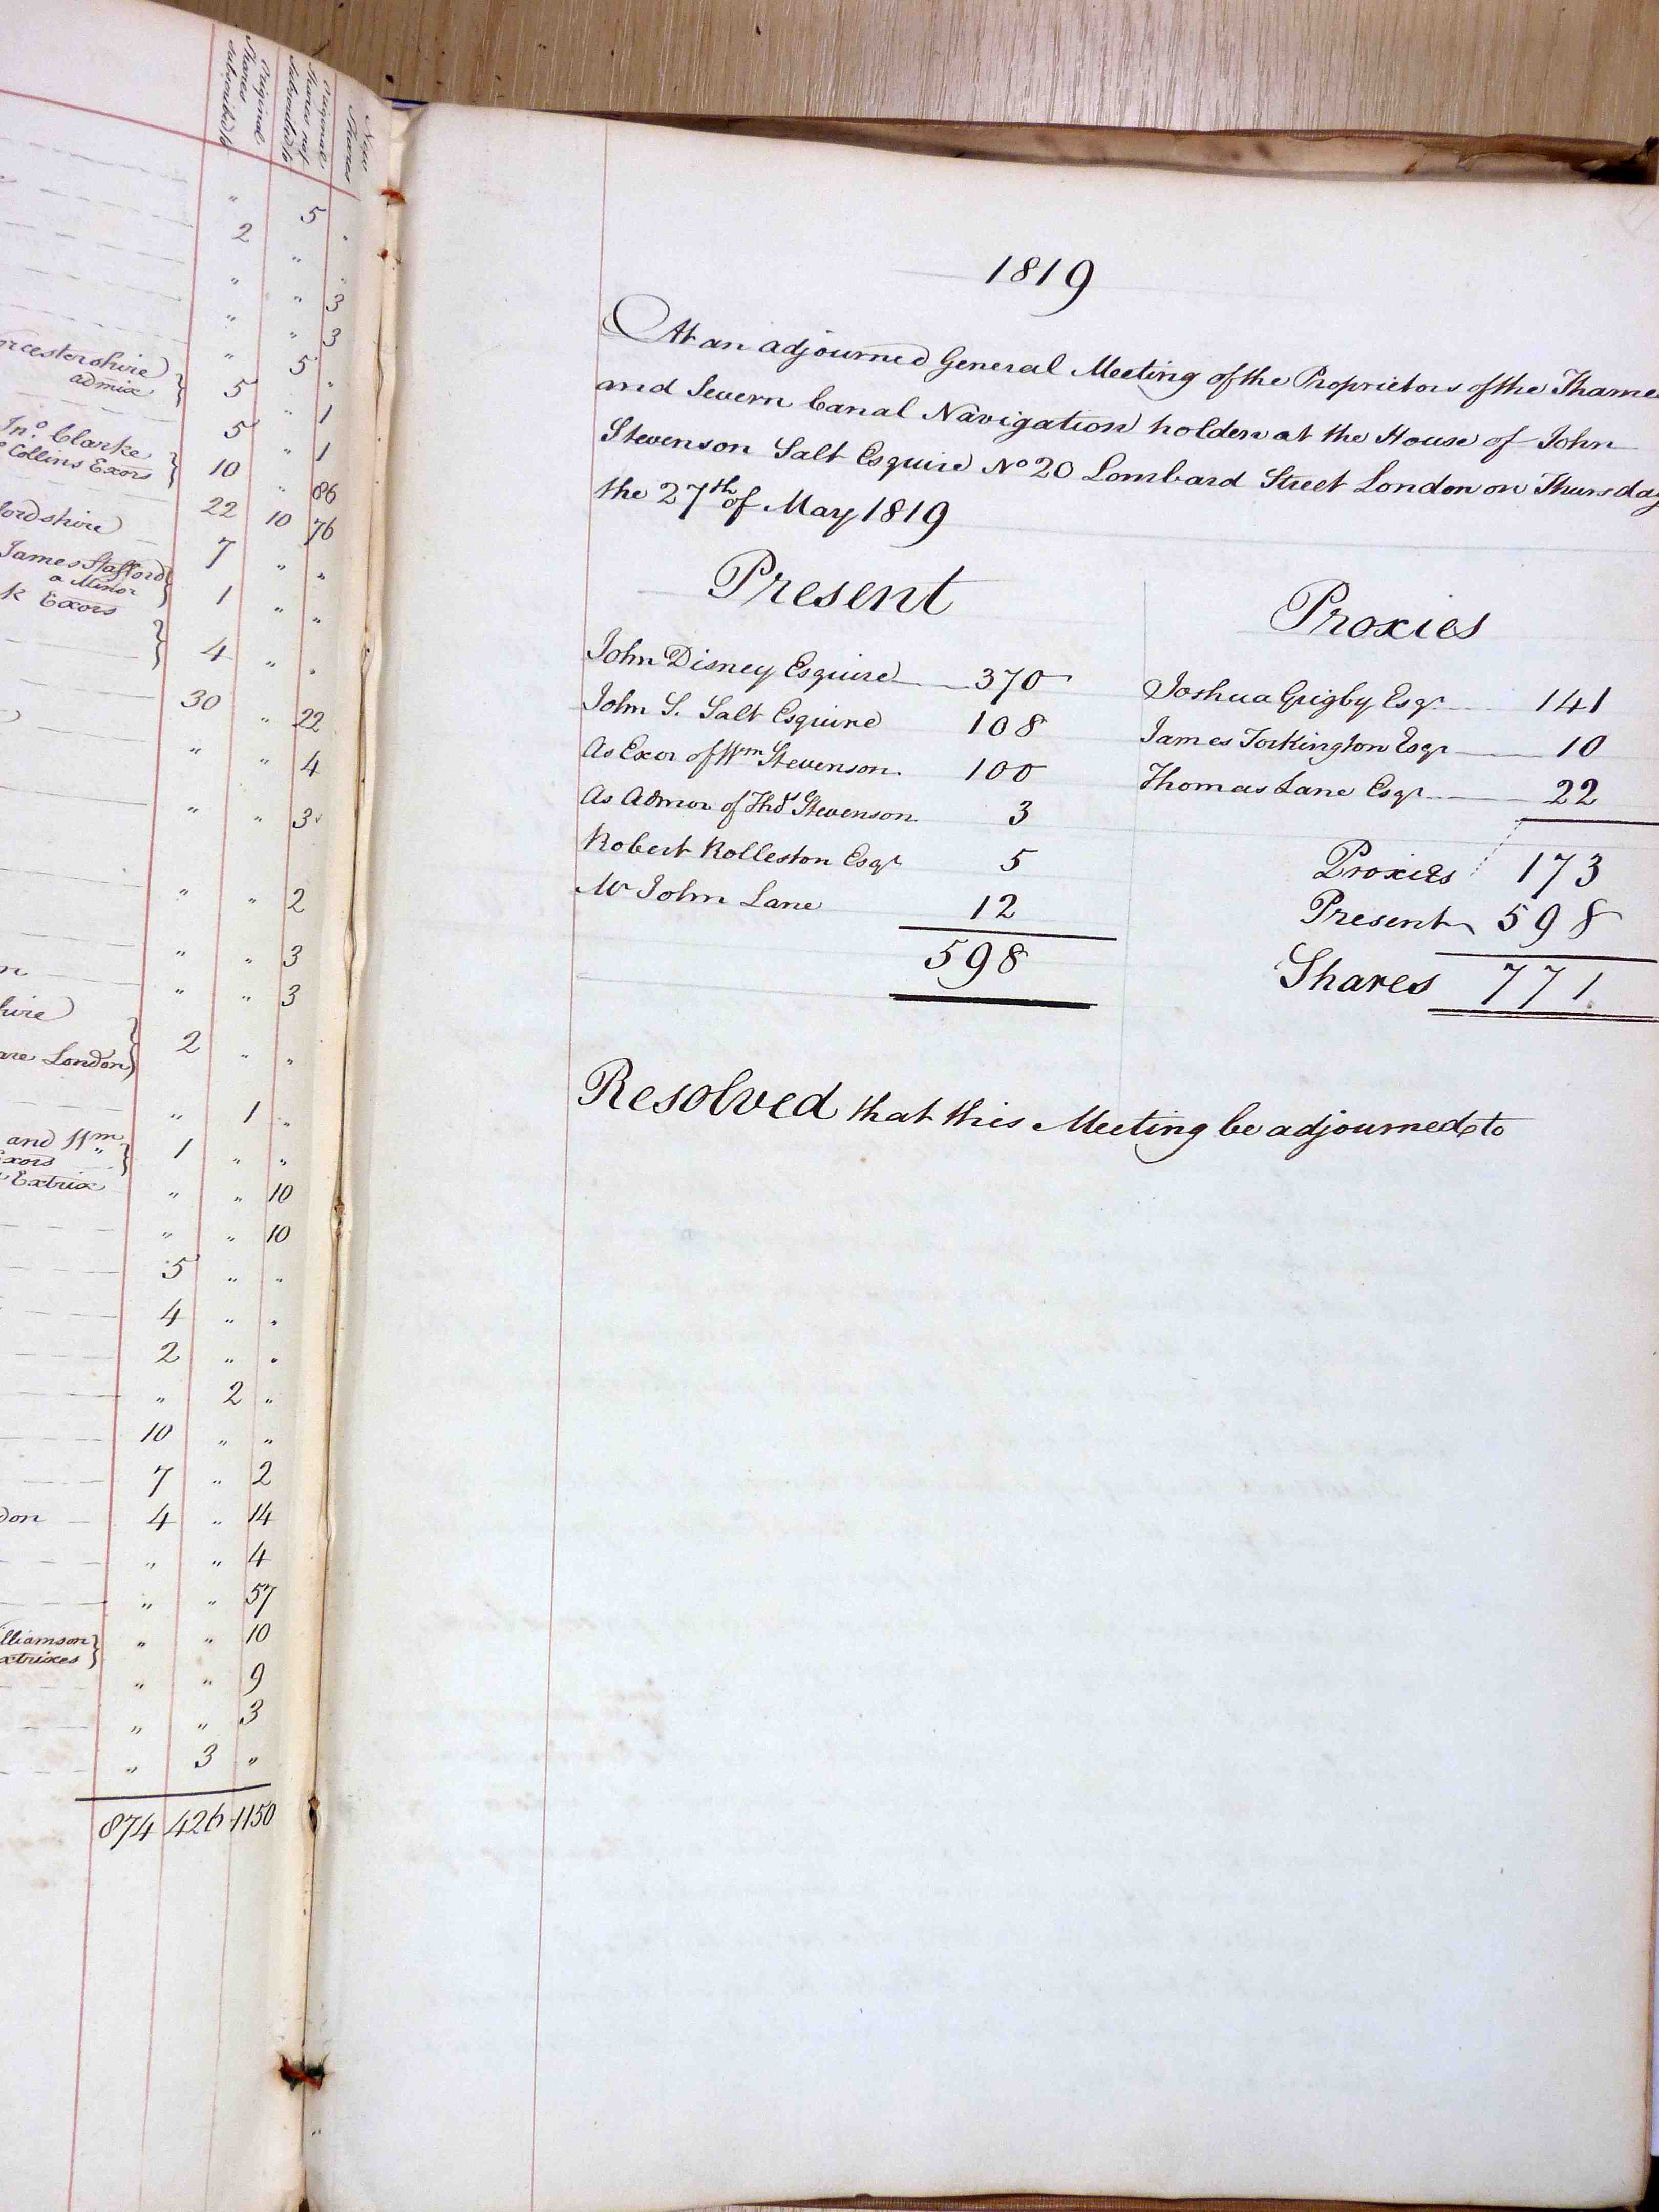 Original Shares subscribed to
Original Shares not subscribed to
New Shares
" 5 "
2 " "
" " 3
" " 3
" 5 "
orcestershire
admix } 5 " 1
5 " 1
Jno. Clarke
Collins Exors } 10 " 86
22 10 76
fordshire 7 " "
James Stafford
a Minor } 1 " "
k Exors
} 4 " "
30 " 22
" " 4
" " 3
" " 2
" " 3
n " " 3
hire
are London } 2 " "
" 1 "
and Wm
Exors } 1 " "
Extrix " " 10
" " 10
5 " "
4 " "
2 " "
" 2 "
10 " "
7 " 2
don 4 " 14
" " 4
" " 57
illiamson
xtrixes } " " 10
" " 9
" " 3
" 3 "
874 426 1150
1819
At an adjourned General Meeting of the Proprietors of the Thame
and Severn Canal Navigation holden at the House of John
Stevenson Salt Esquire No 20 Lombard Street London on Thursday
the 27th of May 1819
Present
John Disney Esquire 370
John S. Salt Esquire 108
As Exor of Wm Stevenson 100
As Admor of Thos Stevenson 3
Robert Rolleston Esqr 5
Mr John Lane 12
598
Proxies
Joshua Grigby Esqr 141
James Torkington Esqr 10
Thomas Lane Esqr 22
Proxies 173
Present 598
Shares 771
Resolved that this Meeting be adjourned to